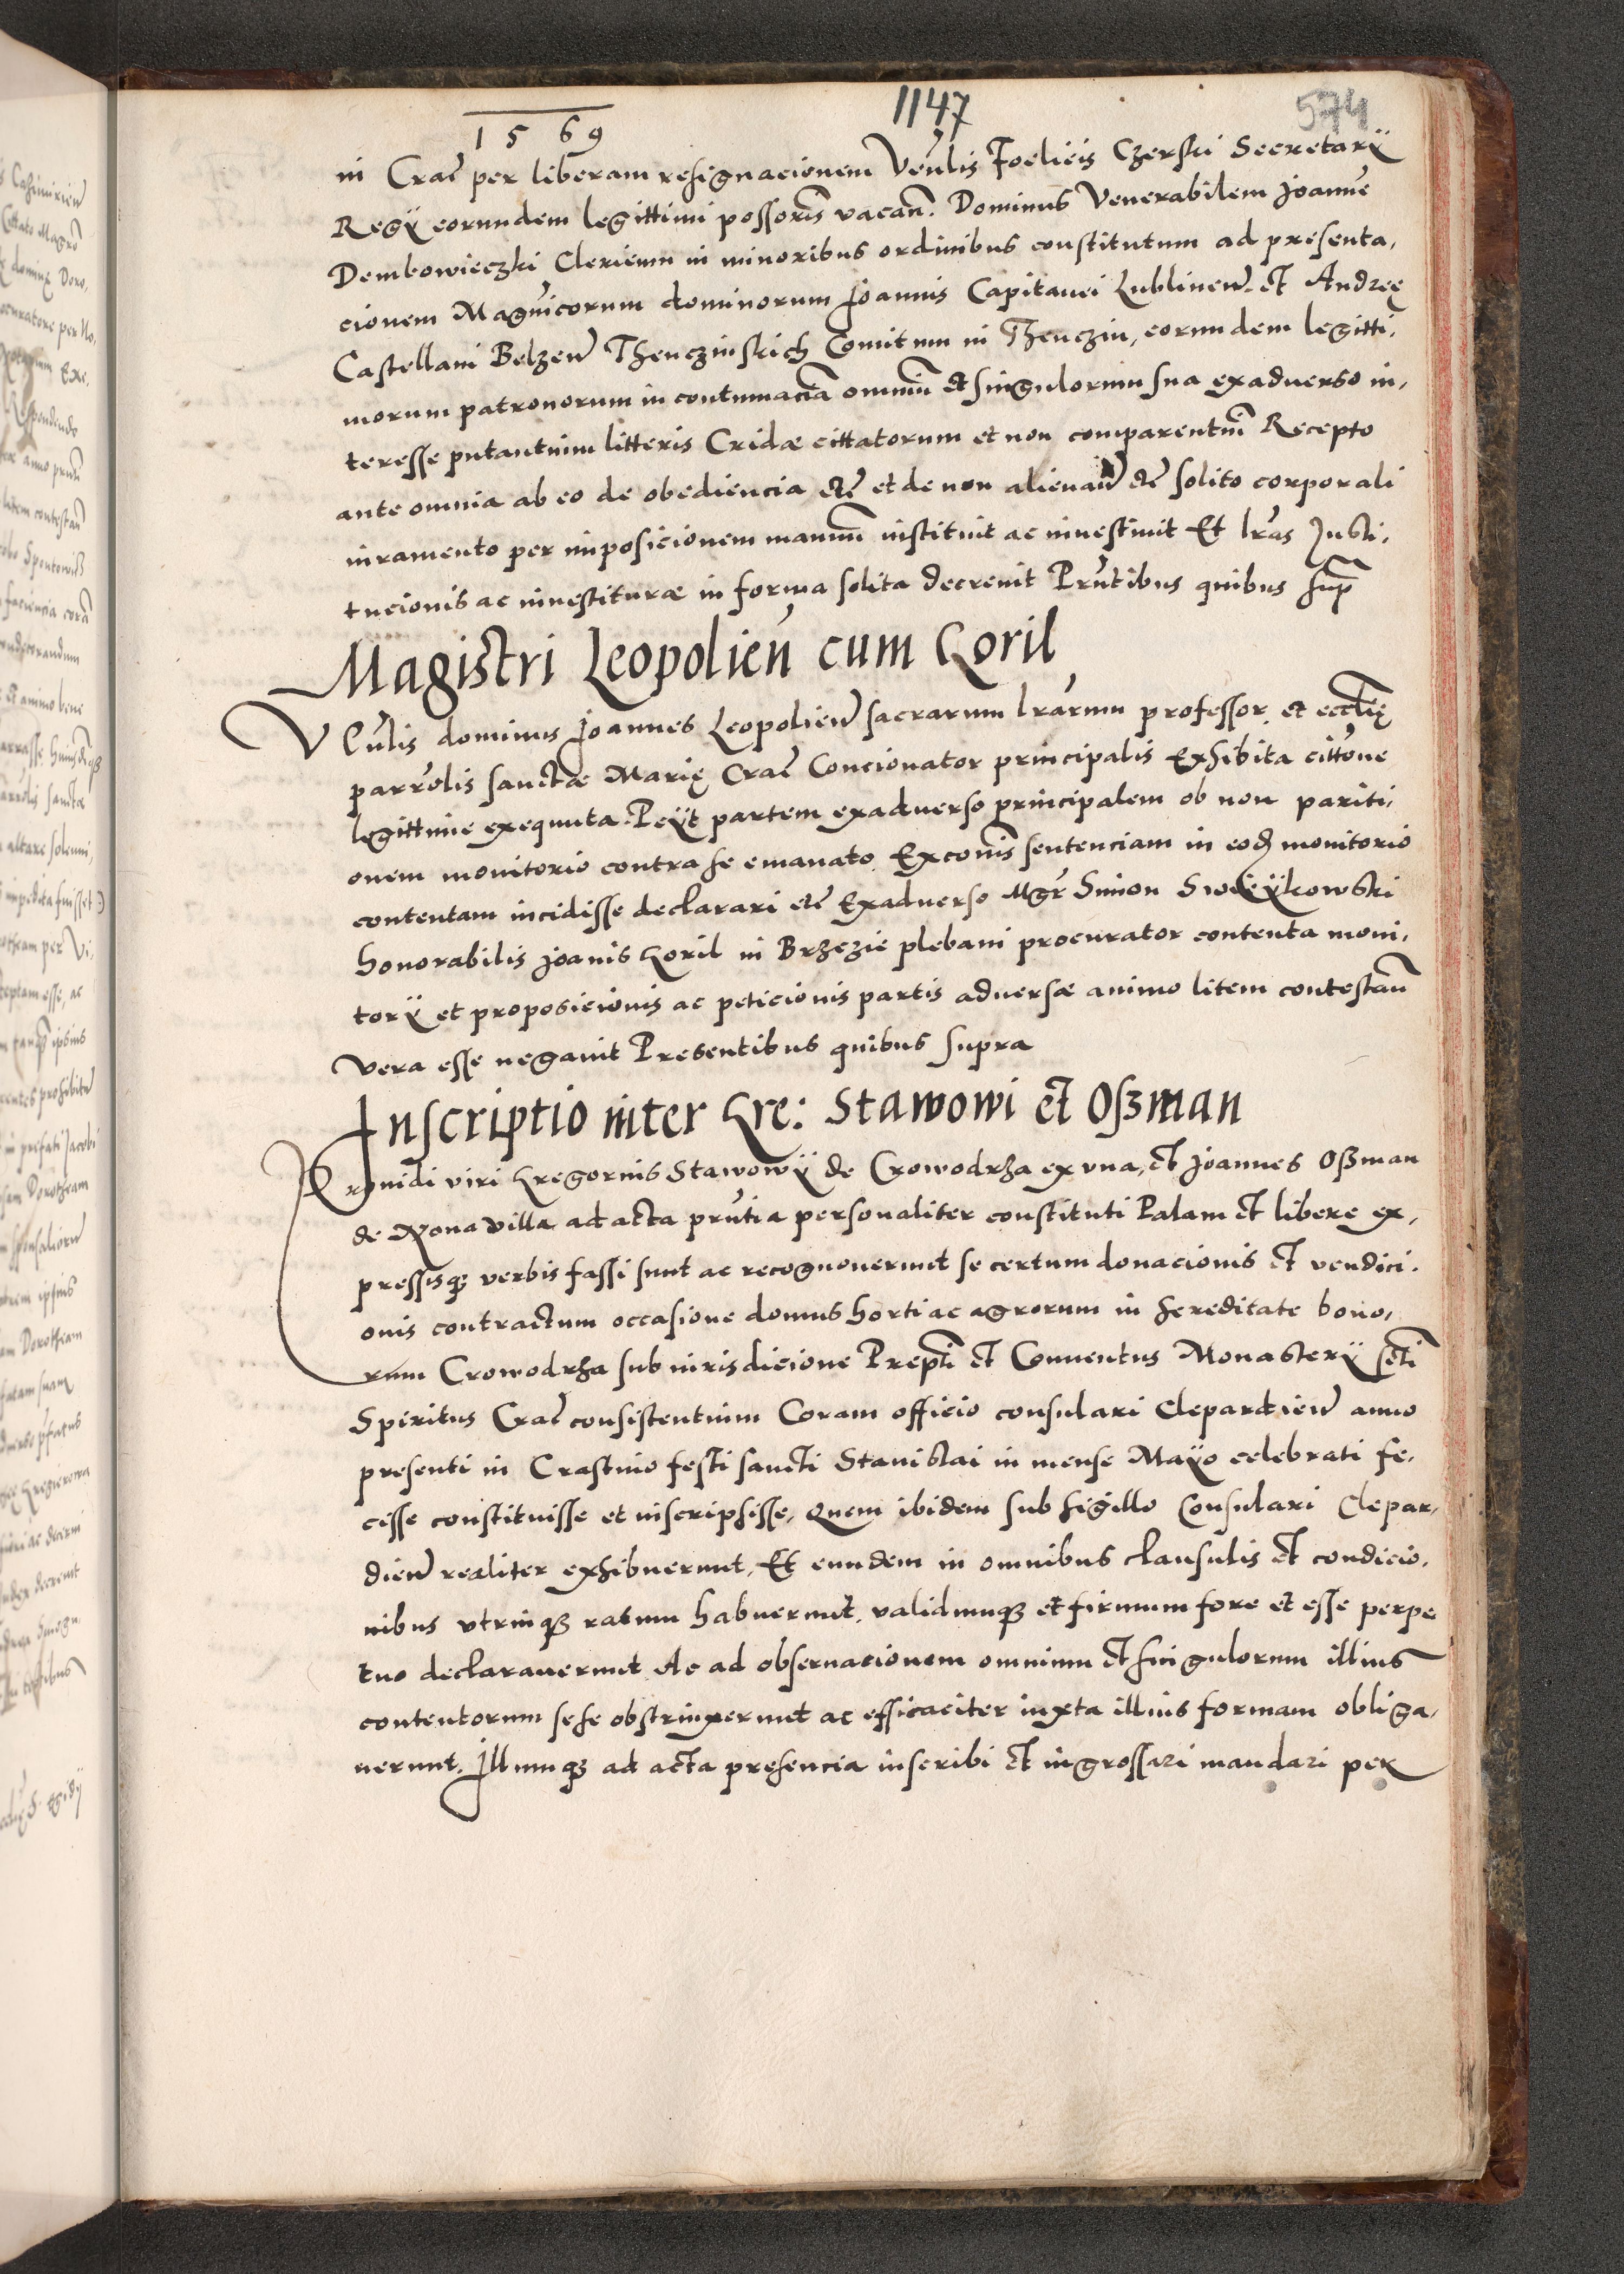 1147
574
1569
in Crac̃ per liberam resignacionem Veñlis Foelicis Czerski Secretarÿ
Regÿ eorundem legittimi possoris vacañ. Dominus Venerabilem Joannẽ
Dembowieczki Clericum in minoribus ordinibus constitutum ad presenta,
cionem Magñicorum dominorum Joannis Capitanei Lublineñ et Andreę
Castellani Belzeñ Thenczinskich Comitum in Thenczin, eorundem legitti,
morum patronorum in contumaciã omniũ et singulorum sua exaduerso in,
teresse putantium litteris Cridæ cittatorum et non comparentiũ Recepto
ante omnia ab eo de obediencia etc̃ et de non alienañ etc̃ solito corporali
iuramento per imposicionem manuũ instituit ac inuestiuit Et lr̃as Insti,
tucionis ac inuestituræ in forma solita decreuit Pr̃ntibus quibus sup̃
Magistri Leopolieñ cum Goril
Veñlis dominus Joannes Leopolieñ sacrarum lr̃arum professor et ecclię
parr̃olis sanctæ Marię Crac̃ Concionator principalis Exhibita citt̃one
legittime exequuta. Peÿt partem exaduerso principalem ob non pariti,
onem monitorio contra se emanato Exconis̃ sentenciam in eod monitorio
contentam incidisse declarari etc̃ Exaduerso Mgr̃ Simon
honorabilis Joanis Goril in Brzezie plebani procurator contenta moni,
torÿ et proposicionis ac peticionis partis aduersæ animo litem contestañ
vera esse negauit Presentibus quibus supra
Inscriptio inter Gre: Stawowi et Oßman
Prouidi viri Gregorius Stawowÿ de Crowodrza ex vna, et Joannes Oßman
de villa ad acta pr̃ntia personaliter constituti Palam et libere ex,
pressisq; verbis fassi sunt ac recognouerunt se certum donacionis et vendici.
onis contractum occasione domus horti ac agrorum in hereditate bono,
rum Crowodrza sub iurisdicione Prep̃ti et Conuentus Monasterÿ scti
Spiritus Crac̃ consistentium Coram officio consulari Clepardieñ anno
presenti in Crastino festi sancti Stanislai in mense Mayo celebrati fe,
cisse constituisse et inscripsisse, Quem ibidem sub sigillo Consulari Clepar,
dieñ realiter exhibuerunt, Et eundem in omnibus clausulis et condicio,
nibus vtrinq; ratum habuerunt, validumq; et firmum fore et esse perpe
tuo declarauerunt Ac ad obseruacionem omnium et singulorum illius
contentorum sese obstrinxerunt ac efficaciter iuxta illius formam obliga,
uerunt, Illumq; ad acta presencia inscribi et ingrossari mandari per